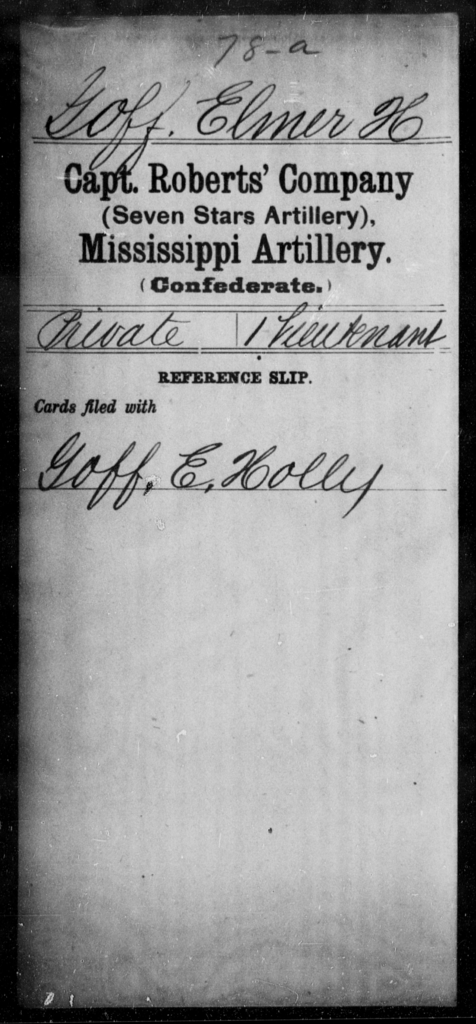 78-a
Goff, Elmer H
Capt. Roberts' Company
(Seven Stars Artillery),
Mississippi Artillery.
(Confederate.)
Private | 1 Lieutenant
REFERENCE SLIP.
Cards filed with
Goff, E. Holly